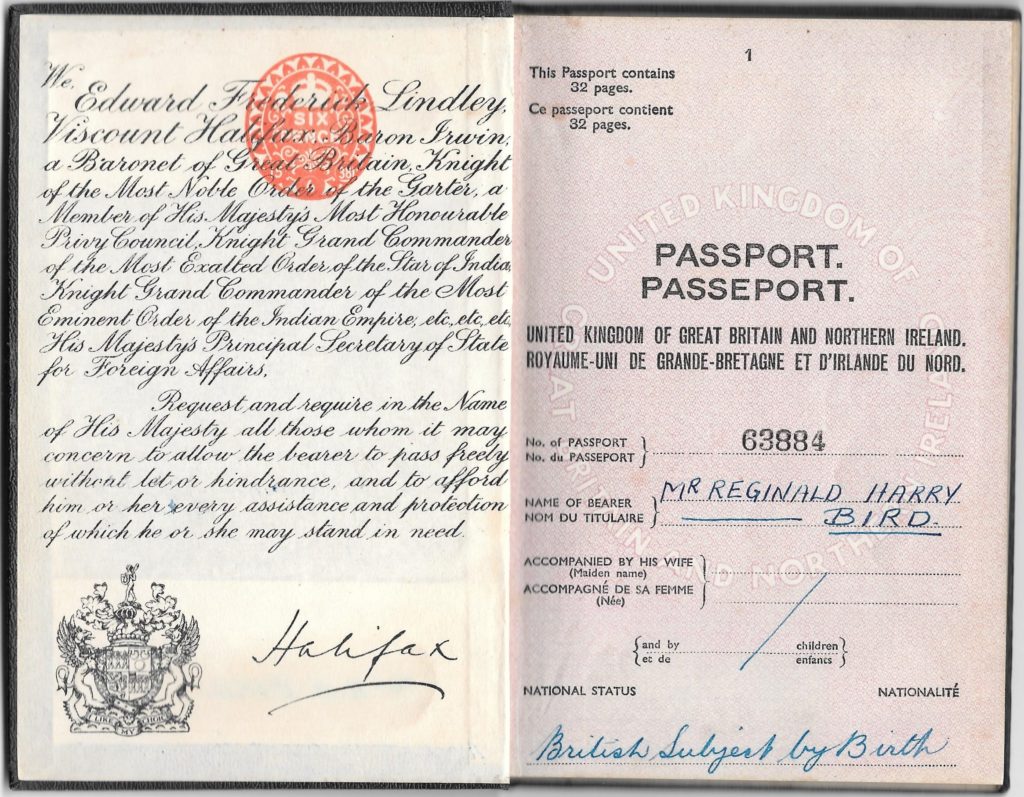 We,
Edward Frederick Lindley,
Viscount Halifax, Baron Irwin,
a Baronet of Great Britain, Knight
of the Most Noble Order of the Garter, a
Member of His Majesty's Most Honourable
Privy Council, Knight Grand Commander
of the Most Exalted Order of the Star of India,
Knight Grand Commander of the Most
Eminent Order of the Indian Empire, etc, etc, etc,
His Majesty's Principal Secretary of State
for Foreign Affairs,
Request and require in the Name
of His Majesty all those whom it may
concern to allow the bearer to pass freely
without let or hindrance, and to afford
him or her every assistance and protection
of which he or she may stand in need.
SIX
PENCE
LIKE MY CHOICE
Halifax
1
This Passport contains
32 pages.
Ce passeport contient
32 pages.
UNITED KINGDOM OF GREAT BRITAIN AND NORTHERN IRELAND
PASSPORT.
PASSEPORT.
UNITED KINGDOM OF GREAT BRITAIN AND NORTHERN IRELAND.
ROYAUME-UNI DE GRANDE-BRETAGNE ET D'IRLANDE DU NORD.
No. of PASSPORT } 63884
No. du PASSEPORT
NAME OF BEARER } MR REGINALD HARRY
NOM DU TITULAIRE BIRD.
ACCOMPANIED BY HIS WIFE
(Maiden name)
ACCOMPAGNÉ DE SA FEMME
(Née)
{and by children}
et de enfants
NATIONAL STATUS NATIONALITÉ
British Subject by Birth